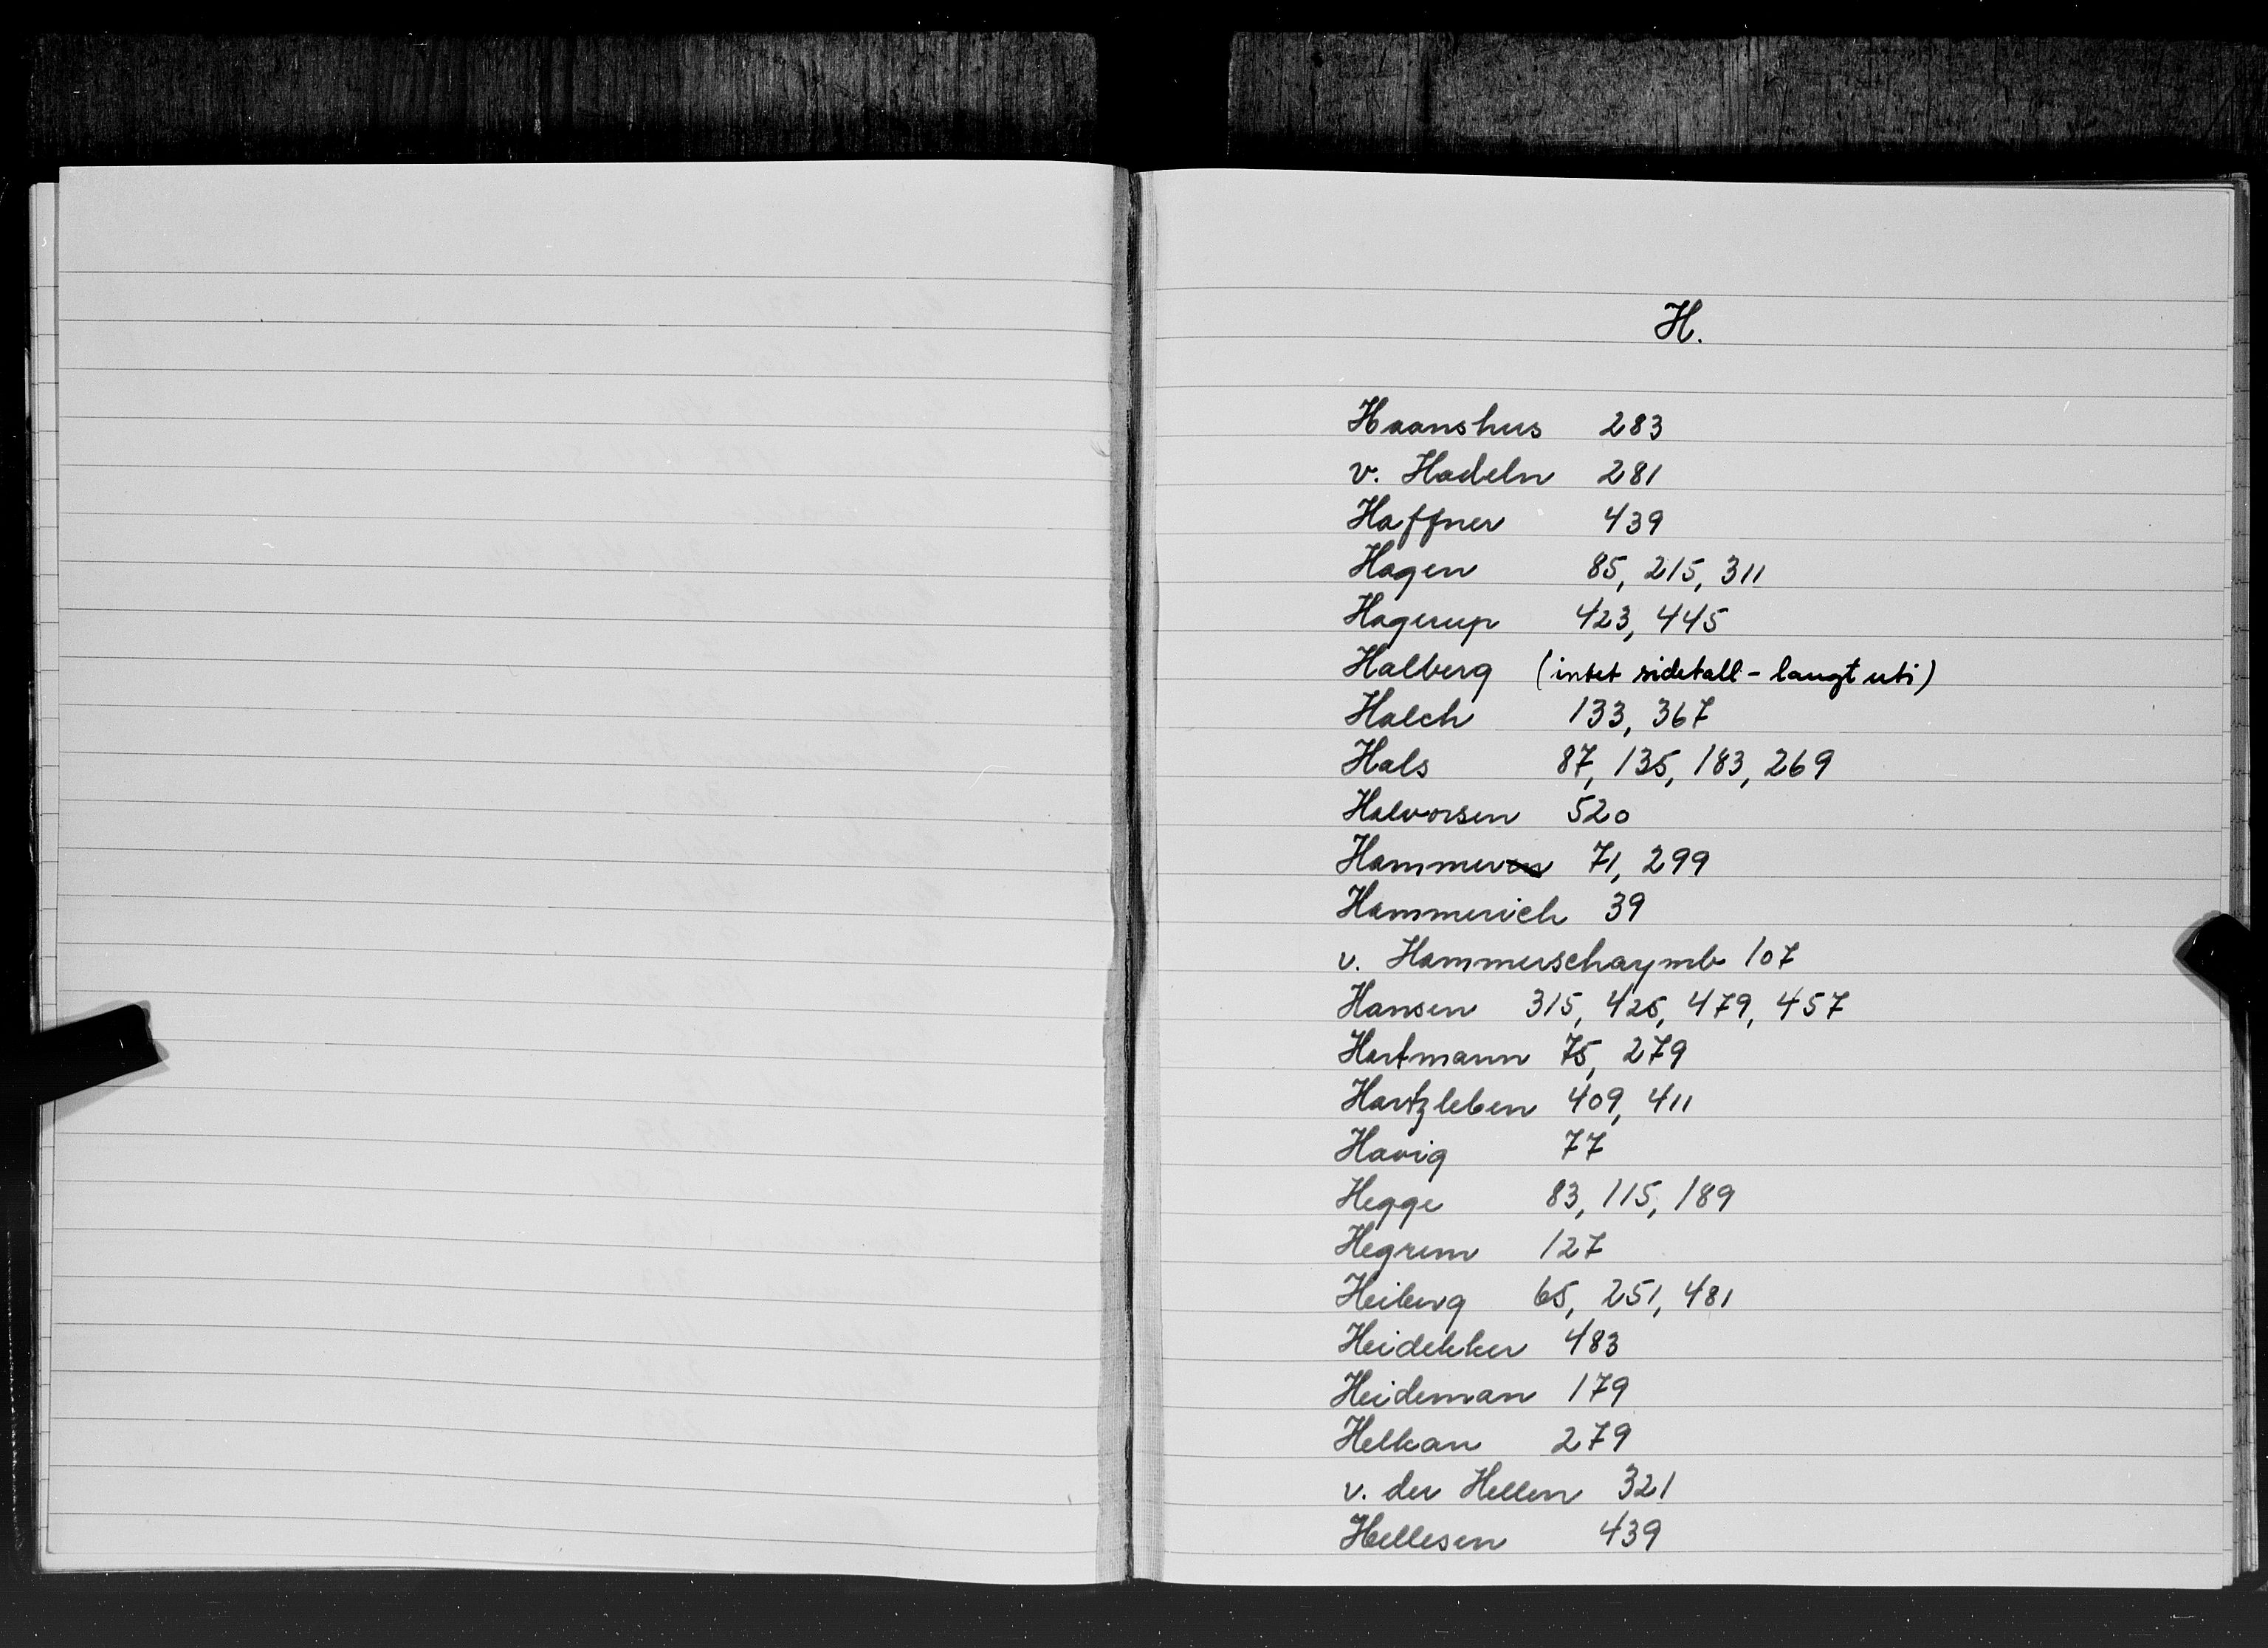 H.
Haanshus 283
v. Hadeln 281
Haffner 439
Hagen 85, 215, 311
Hagerup 423, 445
Halberg (intet sidetall - langt uti)
Halch 133, 367
Hals 87, 135, 183, 269
Halvorsen 520
Hammeren 71, 299
Hammerich 39
v. Hammerschaymb 107
Hansen 315, 425, 479, 457
Hartmann 75, 279
Hartzleben 409, 411
Havig 77
Hegge 83, 115, 189
Hegrem 127
Heiberg 65, 251, 481
Heidekker 483
Heideman 179
Helkan 279
v. der Hellen 321
Hellesen 439